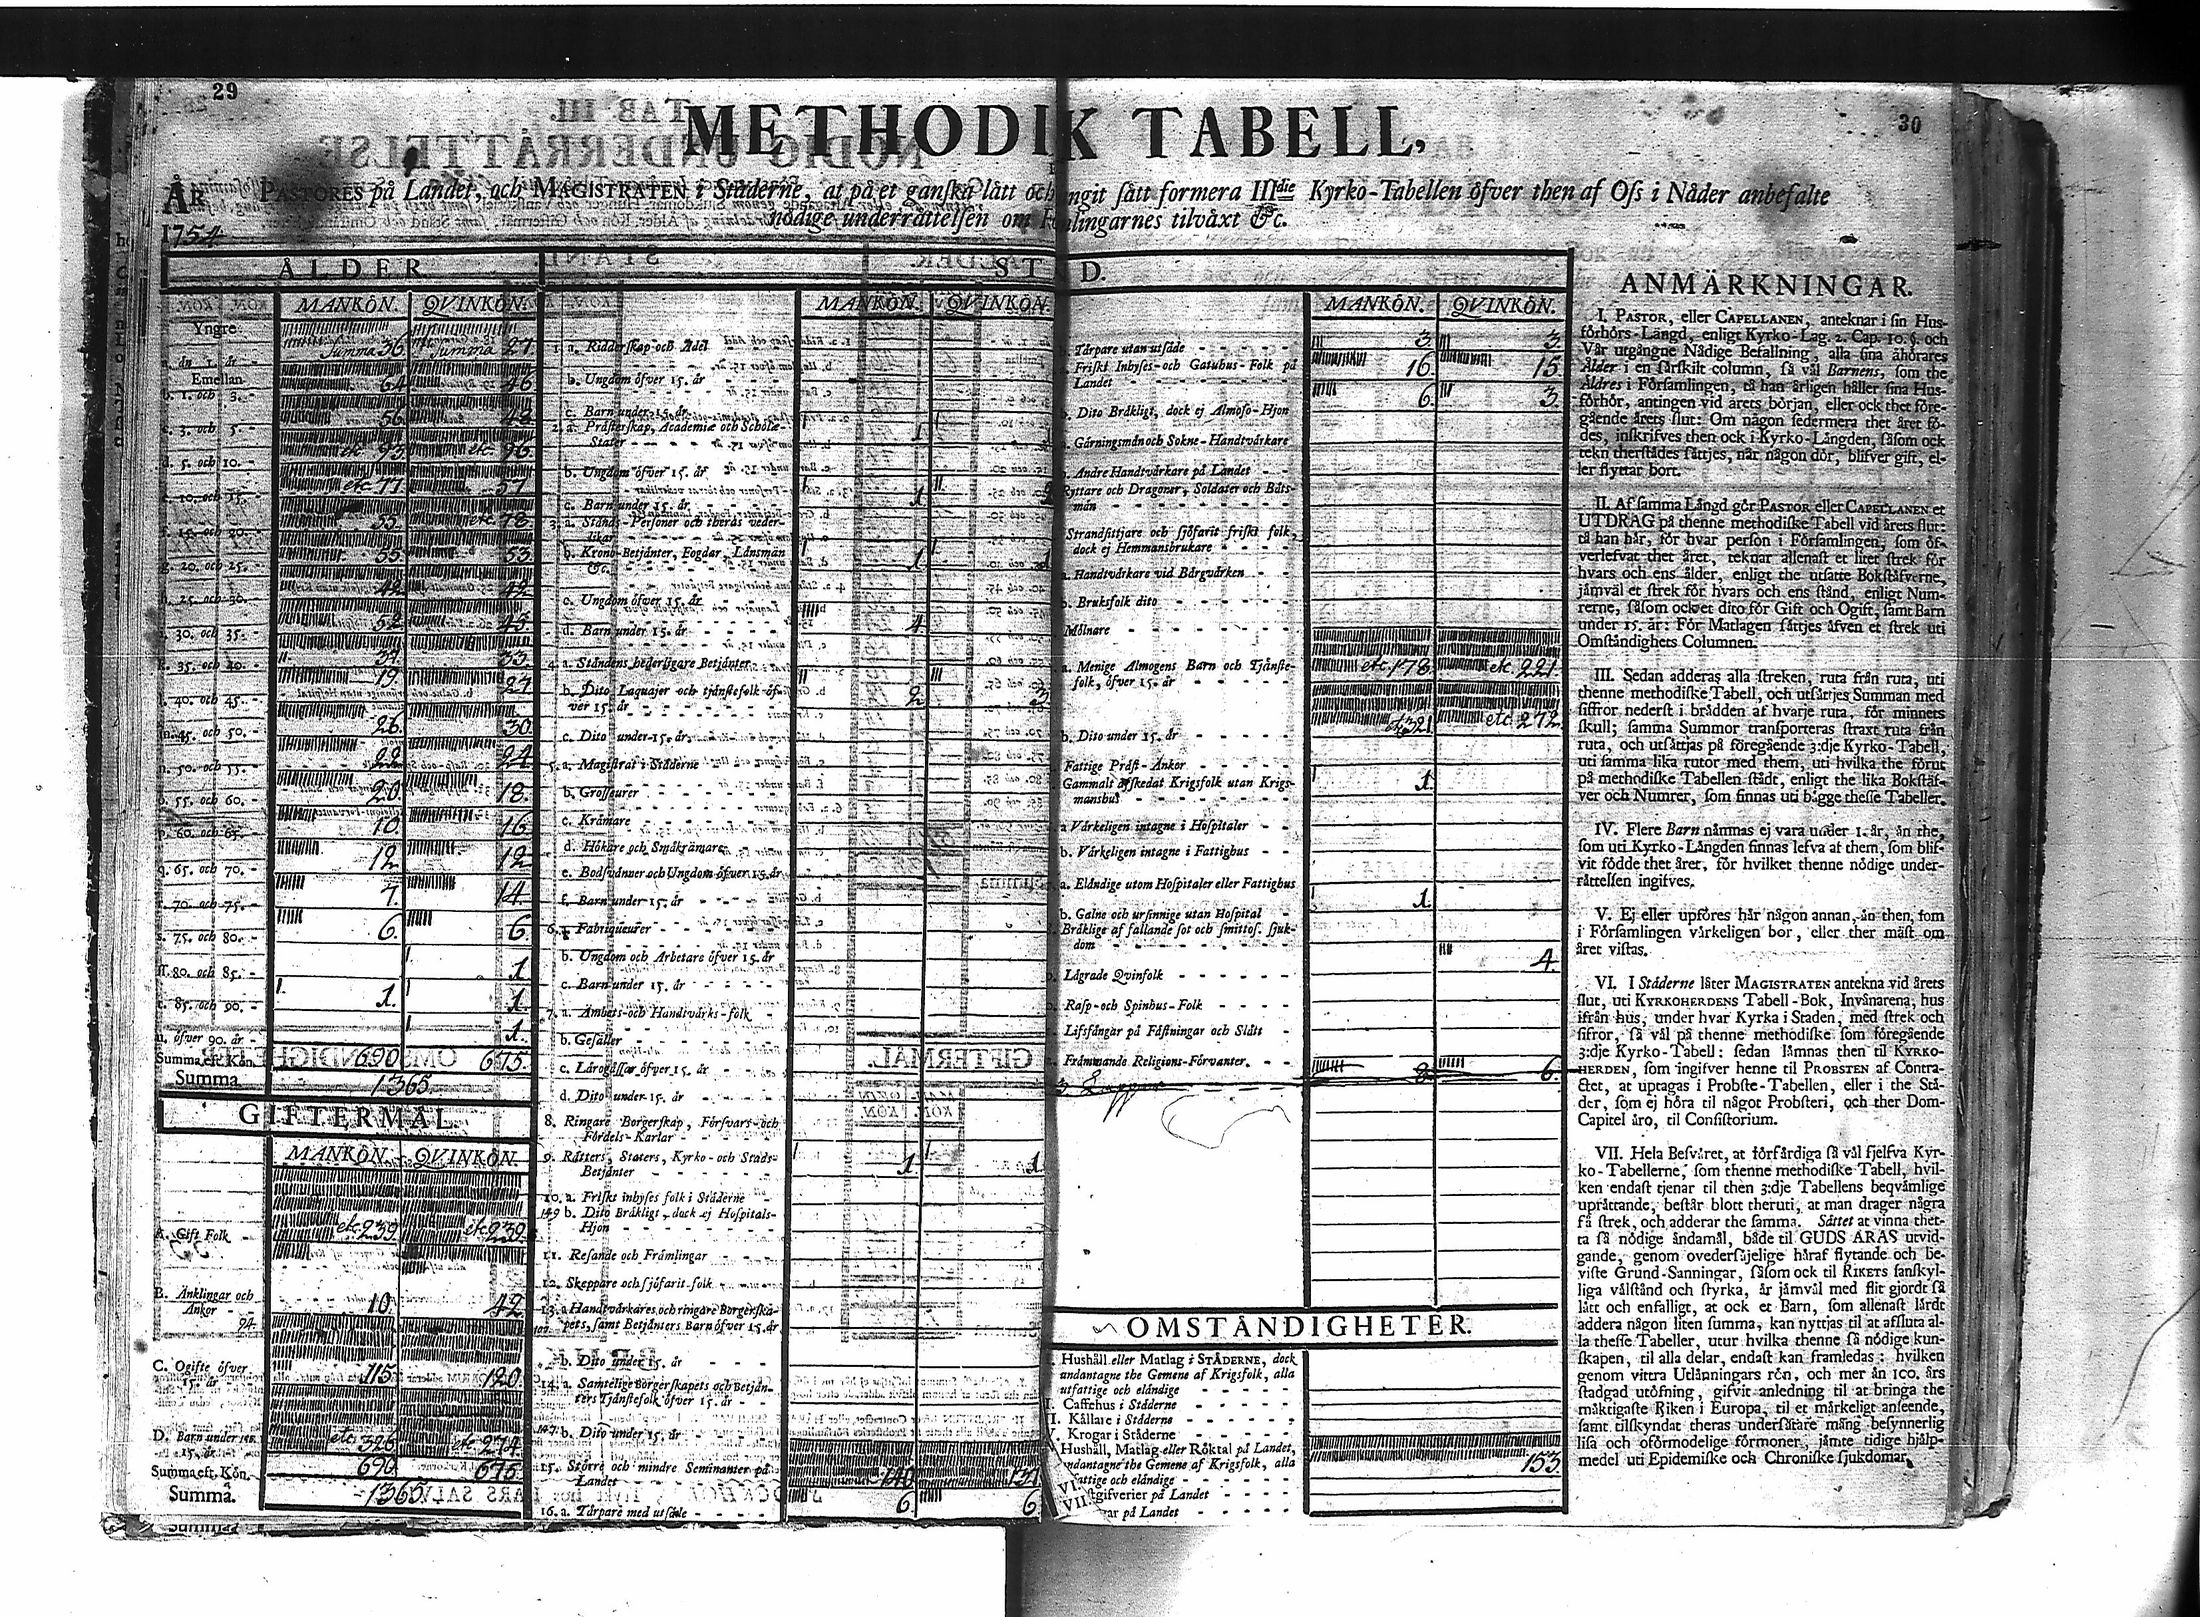 29
30
METHODIK TABELL,
ÅR PASTORES på Landet, och MAGISTRATEN i Städerne, at på et ganska lätt och ringit sätt formera IIIdie Kyrko-Tabellen öfver then af Oss i Nåder anbefalte
1754
nödige underrättelsen om Församlingarnes tilväxt &c.
ÅLDER
MANKÖN. QVINKÖN.
Yngre än 1. år - Summa 36. Summa 27
Emellan
b. 1. och 3. - 64 46
c. 3. och 5. - 56. 48
d. 5. och 10. - etc 95 etc 96
e. 10. och 15. - etc 77 57
f. 15. och 20. - 55. etc 78
g. 20. och 25. - 55. 53.
h. 25. och 30. - 42 42
i. 30. och 35. - 52. 45.
k. 35. och 40. - 37. 33
l. 40. och 45. - 19. 27
m. 45. och 50. - 26. 30.
n. 50. och 55. - 22. 24.
o. 55. och 60. - 20. 18.
p. 60. och 65. - 10. 16
q. 65. och 70. - 12 12
r. 70. och 75. - 7. 14.
s. 75. och 80. - 6. 6
ss. 80. och 85. - 1
t. 85. och 90. - 1. 1.
u. öfver 90. år - 1.
Summa eft. Kön. 690 675.
Summa 1365.
GIFTERMÅL
MANKÖN. QVINKÖN.
A. Gift Folk - etc. 239. etc. 239.
B. Änklingar och Änkor - 10. 42
94.
C. Ogifte öfver 15. år 115. 120
D. Barn under 15. år. etc 326 etc 274
Summa eft. Kön. 690. 675.
Summa. 1365.
STÅND.
MANKÖN. QVINKÖN.
1. a. Ridderskap och Adel
b. Ungdom öfver 15. år
c. Barn under 15. år
2. a. Prästerskap, Academiæ och Scholæ-Stater - 1
b. Ungdom öfver 15. år
c. Barn under 15. år 1
3. a. Stånds-Personer och theras vederlikar
b. Krono-Betjänter, Fogdar, Länsmän &c. 1. 1
c. Ungdom öfver 15. år
d. Barn under 15. år 4.
4. a. Ståndens hederligare Betjänter
b. Dito Laquajer och tjänstefolk öfver 15. år 2 3
c. Dito under 15. år.
5. a. Magistrat i Städerne
b. Grosseurer
c. Krämare
d. Hökare och Småkrämare
e. Bodsvänner och Ungdom öfver 15. år
f. Barn under 15. år
6. a. Fabriqueurer
b. Ungdom och Arbetare öfver 15. år
c. Barn under 15. år
7. a. Ämbets- och Handtvärks-folk
b. Gesäller
c. Lärogåssar öfver 15. år
d. Dito under 15. år
8. Ringare Borgerskap, Försvars- och Fördels-Karlar
9. Rätters, Staters, Kyrko- och Stads-Betjänter 1 1
10. a. Friskt inhyses folk i Städerne
b. Dito Bräkligt, dock ej Hospitals-Hjon
11. Resande och Främlingar
12. Skeppare och sjöfarit folk
13. a. Handtvärkares och ringare Borgerskapets, samt Betjänters Barn öfver 15. år
b. Dito under 15. år
14. a. Samtelige Borgerskapets och Betjänters Tjänstefolk öfver 15. år
b. Dito under 15. år
15. Större och mindre Seminanter på Landet 140 137
16. a. Tårpare med utsäde 6. 6
MANKÖN. QVINKÖN.
b. Tårpare utan utsäde 3 3
a. Friskt Inhyses- och Gatuhus-Folk på Landet 16. 15
b. Dito Bräkligt, dock ej Almoso-Hjon 6. 3.
a. Gärningsmän och Sokne-Handtvärkare
Andre Handtvärkare på Landet
Ryttare och Dragoner, Soldater och Båtsmän
Strandsittjare och sjöfarit friskt folk, dock ej Hemmansbrukare
a. Handtvärkare vid Bärgvärken
b. Bruksfolk dito
Mölnare
a. Menige Almogens Barn och Tjänstefolk, öfver 15. år etc. 178. etc. 221.
b. Dito under 15. år etc 321 etc 272
Fattige Präst-Änkor
Gammalt afskedat Krigsfolk utan Krigsmanshus 1.
a. Värkeligen intagne i Hospitaler
b. Värkeligen intagne i Fattighus
a. Eländige utom Hospitaler eller Fattighus 1.
b. Galne och ursinnige utan Hospital
Bräklige af fallande sot och smittos. sjukdom 4.
Lägrade Qvinfolk
Rasp- och Spinhus-Folk
Lifsfångar på Fästningar och Slått
Främmande Religions-Förvanter. 8 6.
OMSTÄNDIGHETER.
Hushåll eller Matlag i STÄDERNE, dock undantagne the Gemene af Krigsfolk, alla utfattige och eländige
Caffehus i Städerne
Källare i Städerne
Krogar i Städerne
Hushåll, Matlag eller Röktal på Landet, undantagne the Gemene af Krigsfolk, alla fattige och eländige 153.
VI. stgifverier på Landet
VII. ar på Landet
ANMÄRKNINGAR.
I. PASTOR, eller CAPELLANEN, anteknar i sin Hus-
förhörs-Längd, enligt Kyrko-Lag. 2. Cap. 10. §. och
Vår utgångne Nådige Befallning, alla sina åhörares
Ålder i en särskilt column, så väl Barnens, som the
Äldres i Församlingen, tå han årligen håller sina Hus-
förhör, antingen vid årets början, eller ock thet före-
gående årets slut: Om någon sedermera thet året fö-
des, inskrifves then ock i Kyrko-Längden, såsom ock
tekn therstädes sättjes, när någon dör, blifver gift, el-
ler flyttar bort.
II. Af samma Längd gör PASTOR eller CAPELLANEN et
UTDRAG på thenne methodiske Tabell vid årets slut:
tå han här, för hvar person i Församlingen, som öf-
verlefvat thet året, teknar allenast et litet strek för
hvars och ens ålder, enligt the utsatte Bokstäfverne,
jämväl et strek för hvars och ens stånd, enligt Num-
rerne, såsom ock et dito för Gift och Ogift, samt Barn
under 15. år: För Matlagen sättjes äfven et strek uti
Omständighets Columnen.
III. Sedan adderas alla streken, ruta från ruta, uti
thenne methodiske Tabell, och utsättjes Summan med
siffror nederst i brädden af hvarje ruta, för minnets
skull; samma Summor transporteras straxt ruta från
ruta, och utsättjas på föregående 3:dje Kyrko-Tabell,
uti samma lika rutor med them, uti hvilka the förut
på methodiske Tabellen stådt, enligt the lika Bokstäf-
ver och Numrer, som finnas uti bägge thesse Tabeller.
IV. Flere Barn nämnas ej vara under 1. år, än the,
som uti Kyrko-Längden finnas lefva af them, som blif-
vit födde thet året, för hvilket thenne nödige under-
rättelsen ingifves.
V. Ej eller upföres här någon annan, än then, som
i Församlingen värkeligen bor, eller ther mäst om
året vistas.
VI. I Städerne låter MAGISTRATEN antekna vid årets
slut, uti KYRKOHERDENS Tabell-Bok, Invånarena, hus
ifrån hus, under hvar Kyrka i Staden, med strek och
sifror, så väl på thenne methodiske som föregående
3:dje Kyrko-Tabell: sedan lämnas then til KYRKO-
HERDEN, som ingifver henne til PROBSTEN af Contra-
ctet, at uptagas i Probste-Tabellen, eller i the Stä-
der, som ej höra til något Probsteri, och ther Dom-
Capitel äro, til Consistorium.
VII. Hela Besväret, at förfärdiga så väl sjelfva Kyr-
ko-Tabellerne, som thenne methodiske Tabell, hvil-
ken endast tjenar til then 3:dje Tabellens beqvämlige
uprättande, består blott theruti, at man drager några
få strek, och adderar the samma. Sättet at vinna thet-
ta så nödige ändamål, både til GUDS ÄRAS utvid-
gande, genom ovedersäjelige häraf flytande och be-
viste Grund-Sanningar, såsom ock til RIKETS sanskyl-
liga välstånd och styrka, är jämväl med flit gjordt så
lätt och enfalligt, at ock et Barn, som allenast lärdt
addera någon liten summa, kan nyttjas til at afsluta al-
la thesse Tabeller, utur hvilka thenne så nödige kun-
skapen, til alla delar, endast kan framledas: hvilken
genom vittra Utlänningars rön, och mer än 100. års
stadgad utöfning, gifvit anledning til at bringa the
mäktigaste Riken i Europa, til et märkeligt anseende,
samt tilskyndat theras undersåtare mång besynnerlig
lisa och oförmodelige förmoner, jämte tidige hjälp-
medel uti Epidemiske och Chroniske sjukdomar.